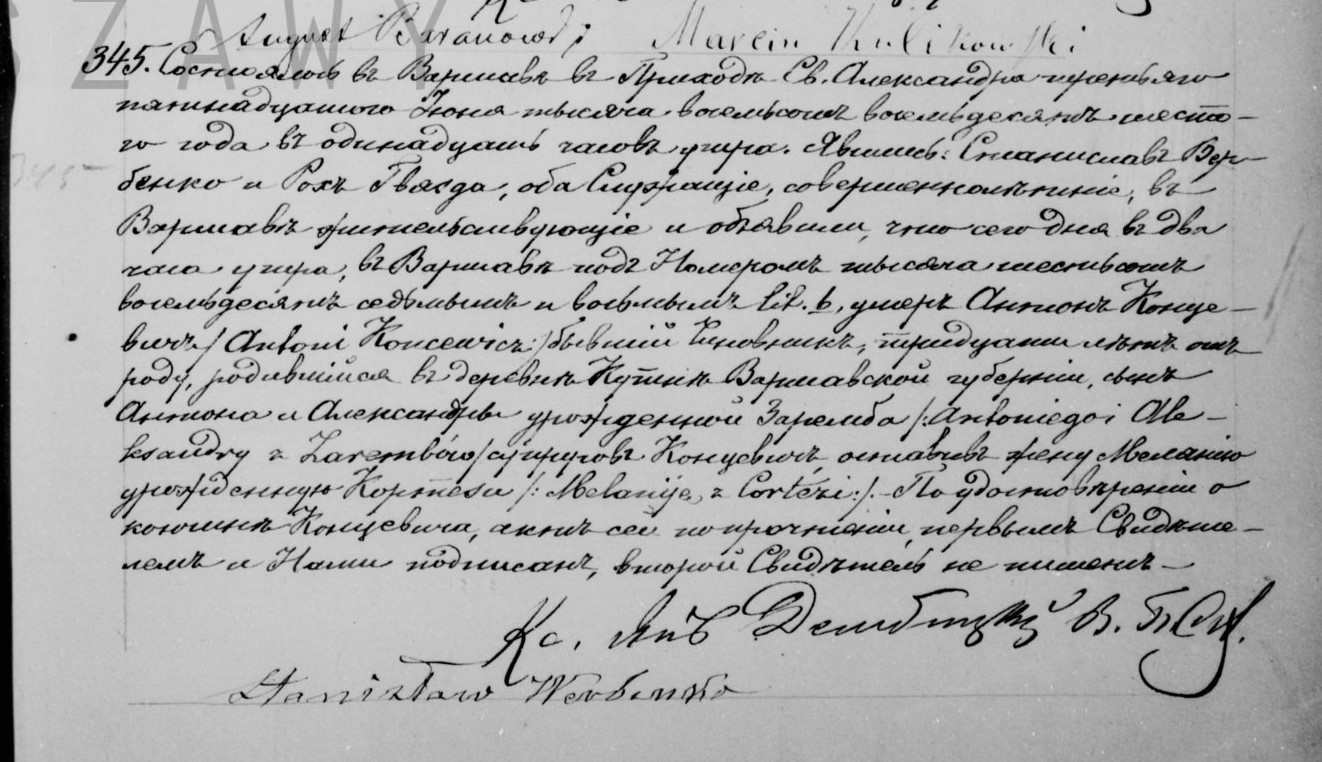 SZAWY
August Baranowski Marcin Kulikowski
345. Состоялось въ Варшавѣ въ Приходѣ Св. Александра третьяго
пятнадцатого Іюня тысяча восемьсотъ восемьдесятъ шесто-
го года въ одинадцать часовъ утра. Явились: Станиславъ Вер-
бенко и Рохъ Гвязда, оба Служащіе, совершеннолѣтніе, въ
Варшавѣ жительствующіе и объявили, что сего дня въ два
часа утра, въ Варшавѣ подъ Номеромъ тысяча шестьсотъ
восемьдесятъ седьмымъ и восьмымъ lit. b, умеръ Антонъ Конце-
вичъ /Antoni Koncewicz:/ бывшій Чиновникъ, тридцати лѣтъ отъ
роду, родившійся въ деревнѣ Варшавской губерніи, сынъ
Антона и Александры урожденной Заремба /:Antoniego i Ale-
ksandry z Zarembów/ супруговъ Концевичъ, оставивъ жену Меланію
урожденную Кортези /:Melaniję z Cortézi:/. По удостовѣреніи о
кончинѣ Концевича, актъ сей по прочтеніи, первымъ Свидѣте-
лемъ и Нами подписанъ, второй Свидѣтель не пишетъ
Кс. Янъ
Stanisław Werbenko
345